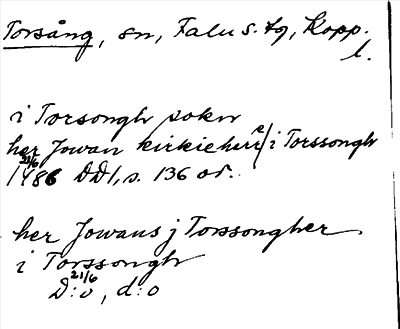 Torsång, sn, Falu s. tg, Kopp.
l.
i Torsongh sokn
her Jowan kirkieherre / i Torssongh
21/6 1486 DD1, s. 136 or.
her Jowans j Torssongher
i Torssongh
21/6
D:o, d:o